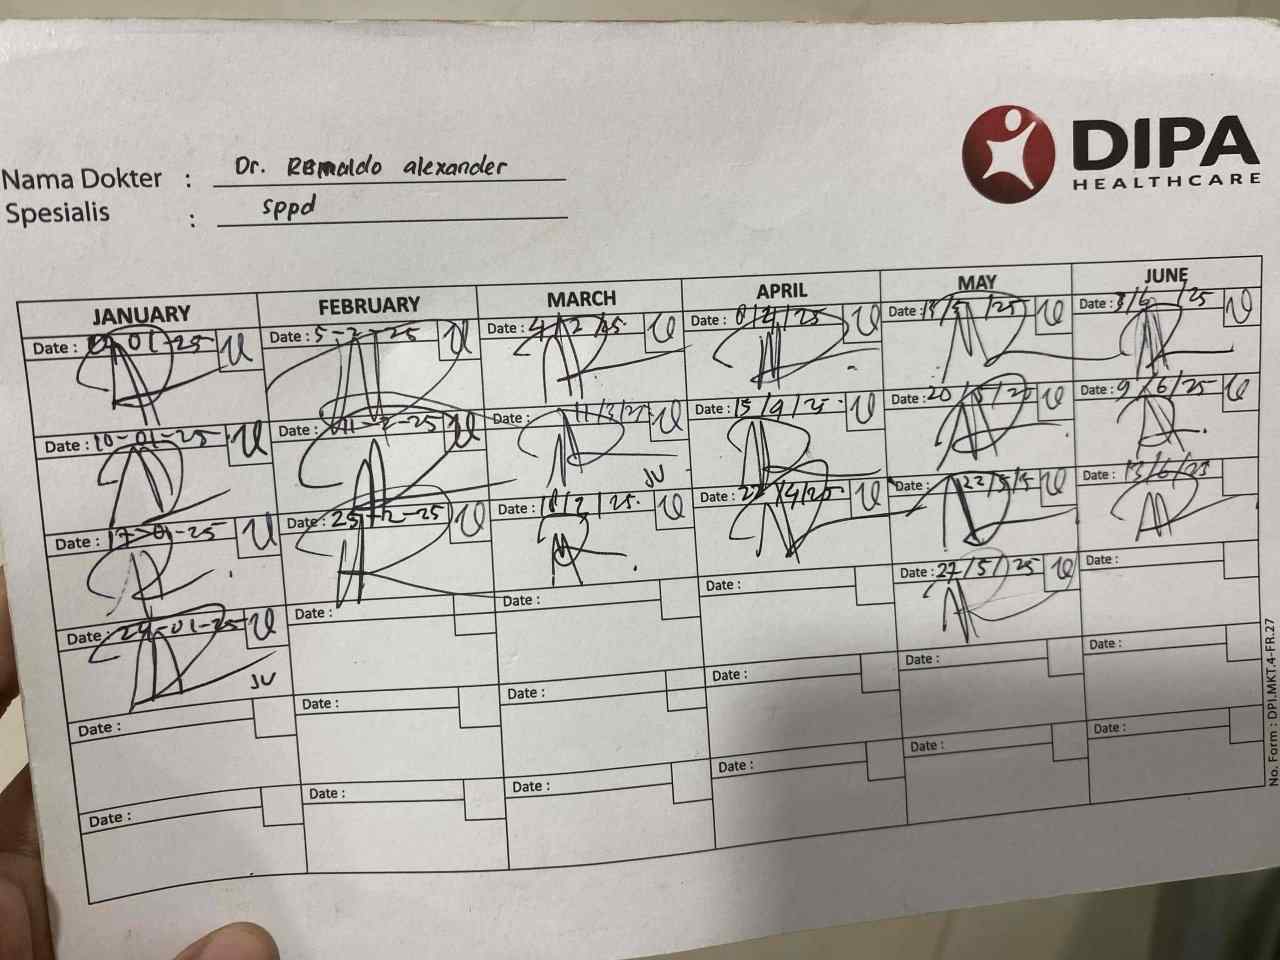 DIPA
HEALTHCARE
Nama Dokter : Dr. alexander
Spesialis : sppd
JANUARY FEBRUARY MARCH APRIL MAY JUNE
Date : 01-25 Date : 5-2-25 Date : 4/2/25 Date : 8/4/25 Date : /5/25 Date : 3/6/25
Date : 10-01-25 Date : 11-2-25 Date : 11/3/25 Date : 15/4/25 Date : 20/5/25 Date : 9/6/25
JV
Date : 17-01-25 Date : 25-2-25 Date : 18/2/25 Date : 22/4/25 Date : 22/5/ Date : 13/6/25
Date : 24-01-25 Date : Date : Date : Date : 27/5/25 Date :
JV
Date : Date : Date : Date : Date : Date :
Date : Date : Date : Date : Date : Date :
No. Form : DPI.MKT.4-FR.27